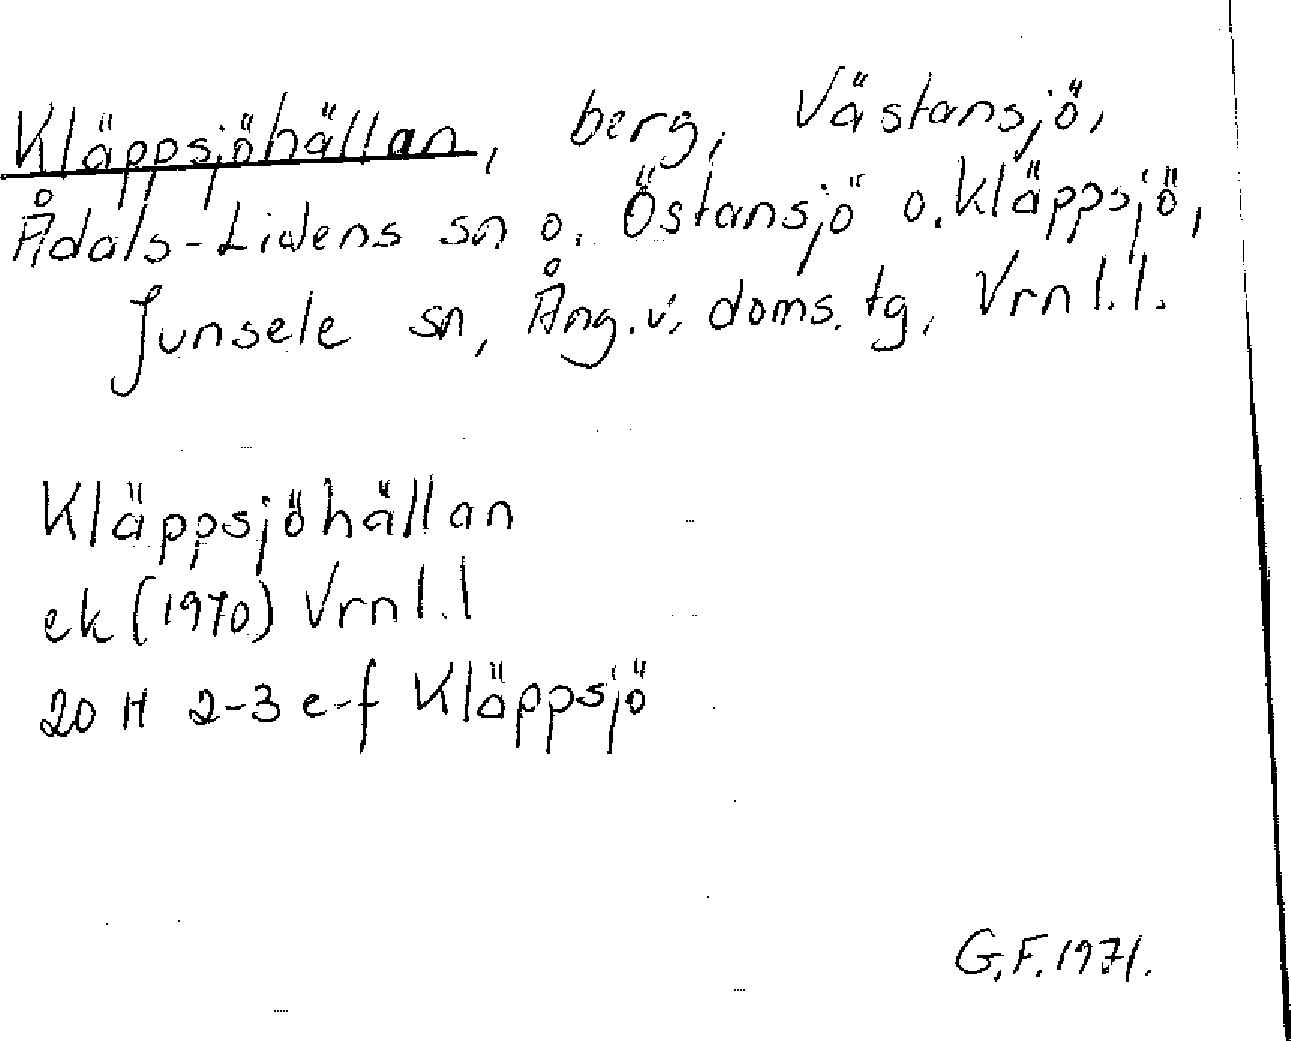 Kläppsjöhällan, berg, Västansjö,
Ådals-Lidens sn o. Östansjö o. Kläppsjö,
Junsele sn, Ång. v. doms. tg, Vrnl. l.
Kläppsjöhällan
ek (1970) Vrnl. l
20 H 2-3 e-f Kläppsjö
G. F. 1971.